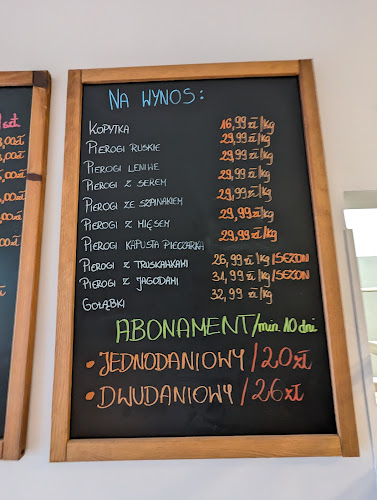 NA WYNOS:
KOPYTKA 16,99 zł/kg
PIEROGI RUSKIE 29,99 zł/kg
PIEROGI LENIWE 29,99 zł/kg
PIEROGI Z SEREM 29,99 zł/kg
PIEROGI ZE SZPINAKIEM 29,99 zł/kg
PIEROGI Z MIĘSEM 29,99 zł/kg
PIEROGI KAPUSTA PIECZARKA 29,99 zł/kg
PIEROGI Z TRUSKAWKAMI 26,99 zł/kg/SEZON
PIEROGI Z JAGODAMI 31,99 zł/kg/SEZON
GOŁĄBKI 32,99 zł/kg
ABONAMENT/min 10 dni
• JEDNODANIOWY / 20 zł
• DWUDANIOWY / 26 zł